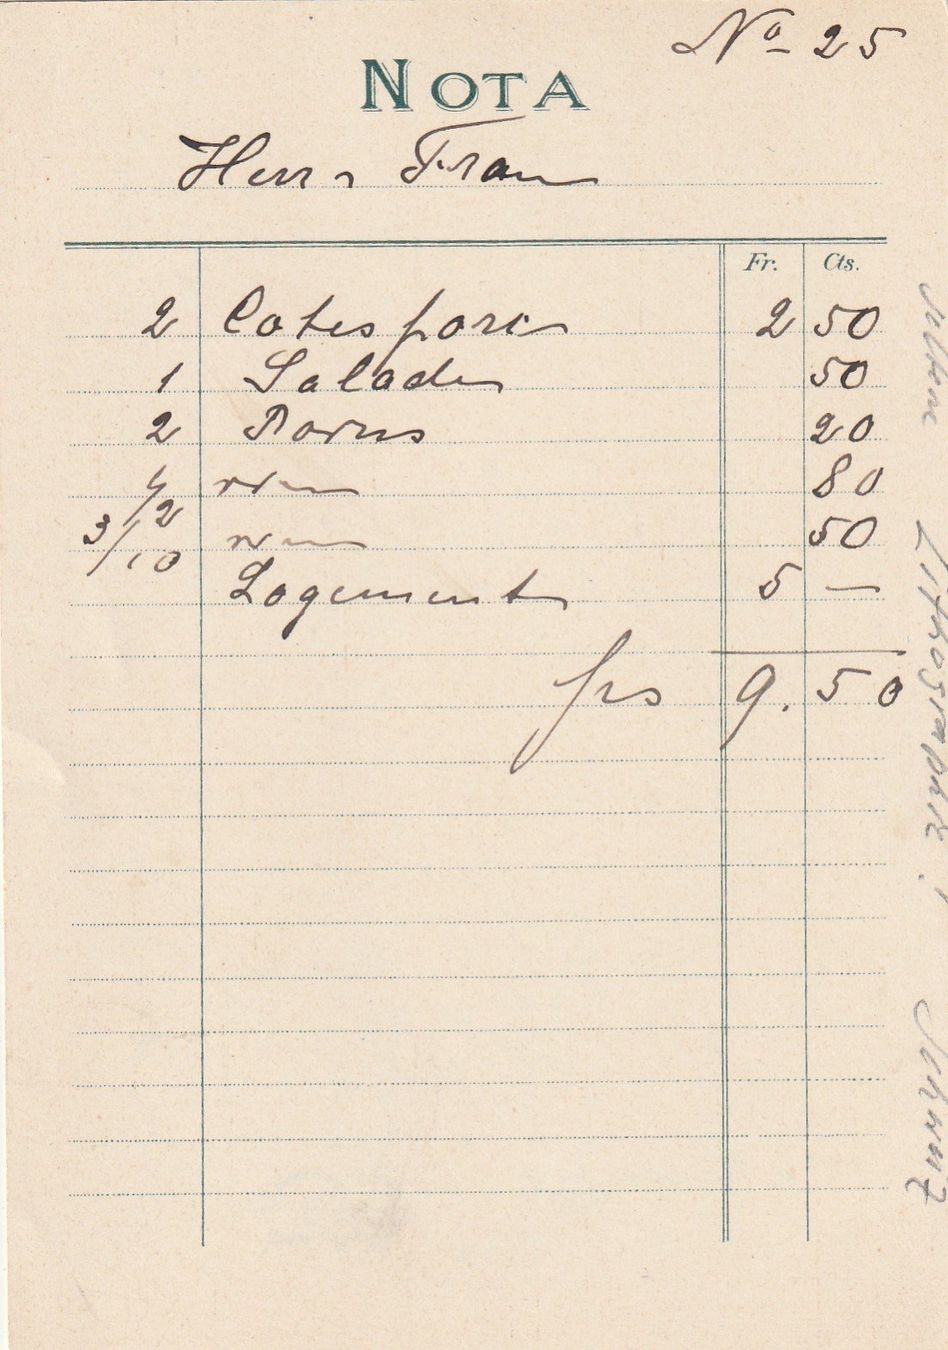 No 25
NOTA
Herr Frau
Fr. Cts.
2 Cotes porc 2 50
1 Salade 50
2 20
1/2 vin 80
3/10 vin 50
Logement 5 —
frs 9.50
Seltene Lithographie! Schweiz